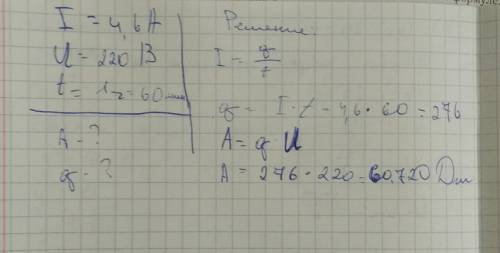 I = 4,6 A
U = 220 В
t = 1 = 60 мин
A - ?
q - ?
Решение:
I = q/t
q = I · t = 4,6 · 60 = 276
A = q U
A = 276 · 220 = 60.720 Дж